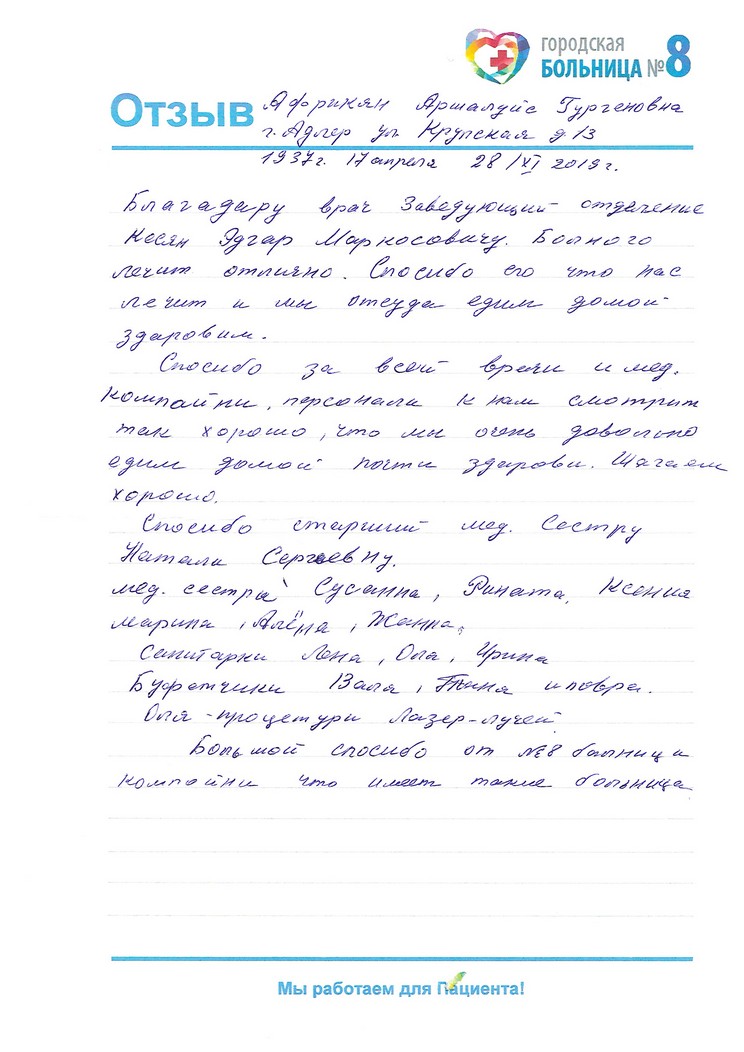 городская
БОЛЬНИЦА №8
Отзыв Африкян Аршалуйс Гургеновна
г. Адлер ул Крупская д 13
1937г. 17 апреля 28/XI 2019г.
Благадару врач Заведующий отделение
Кесян Эдгар Маркосовичу. Болного
лечит отлично. Спосибо его что нас
лечит и мы отсуда едим домой
здаровим.
Спосибо за всей врачи и мед.
компайни, персонали к нам смотрит
так хорошо, что мы очень довольно
едим домой почти здарови. Шагаем
хорошо.
Спосибо старший мед. Сестру
Натали Сергеевну.
мед. сестры Сусанна, Рината, Ксения
марина, Алёна, Жанна,
Санитарки Лена, Оля, Ирина
Буфетчики Валя, Тина и повра.
Оля - процетури Лазер-лучей
Большой спосибо от №8 болница
компайни что имеет такие больница
Мы работаем для Пациента!